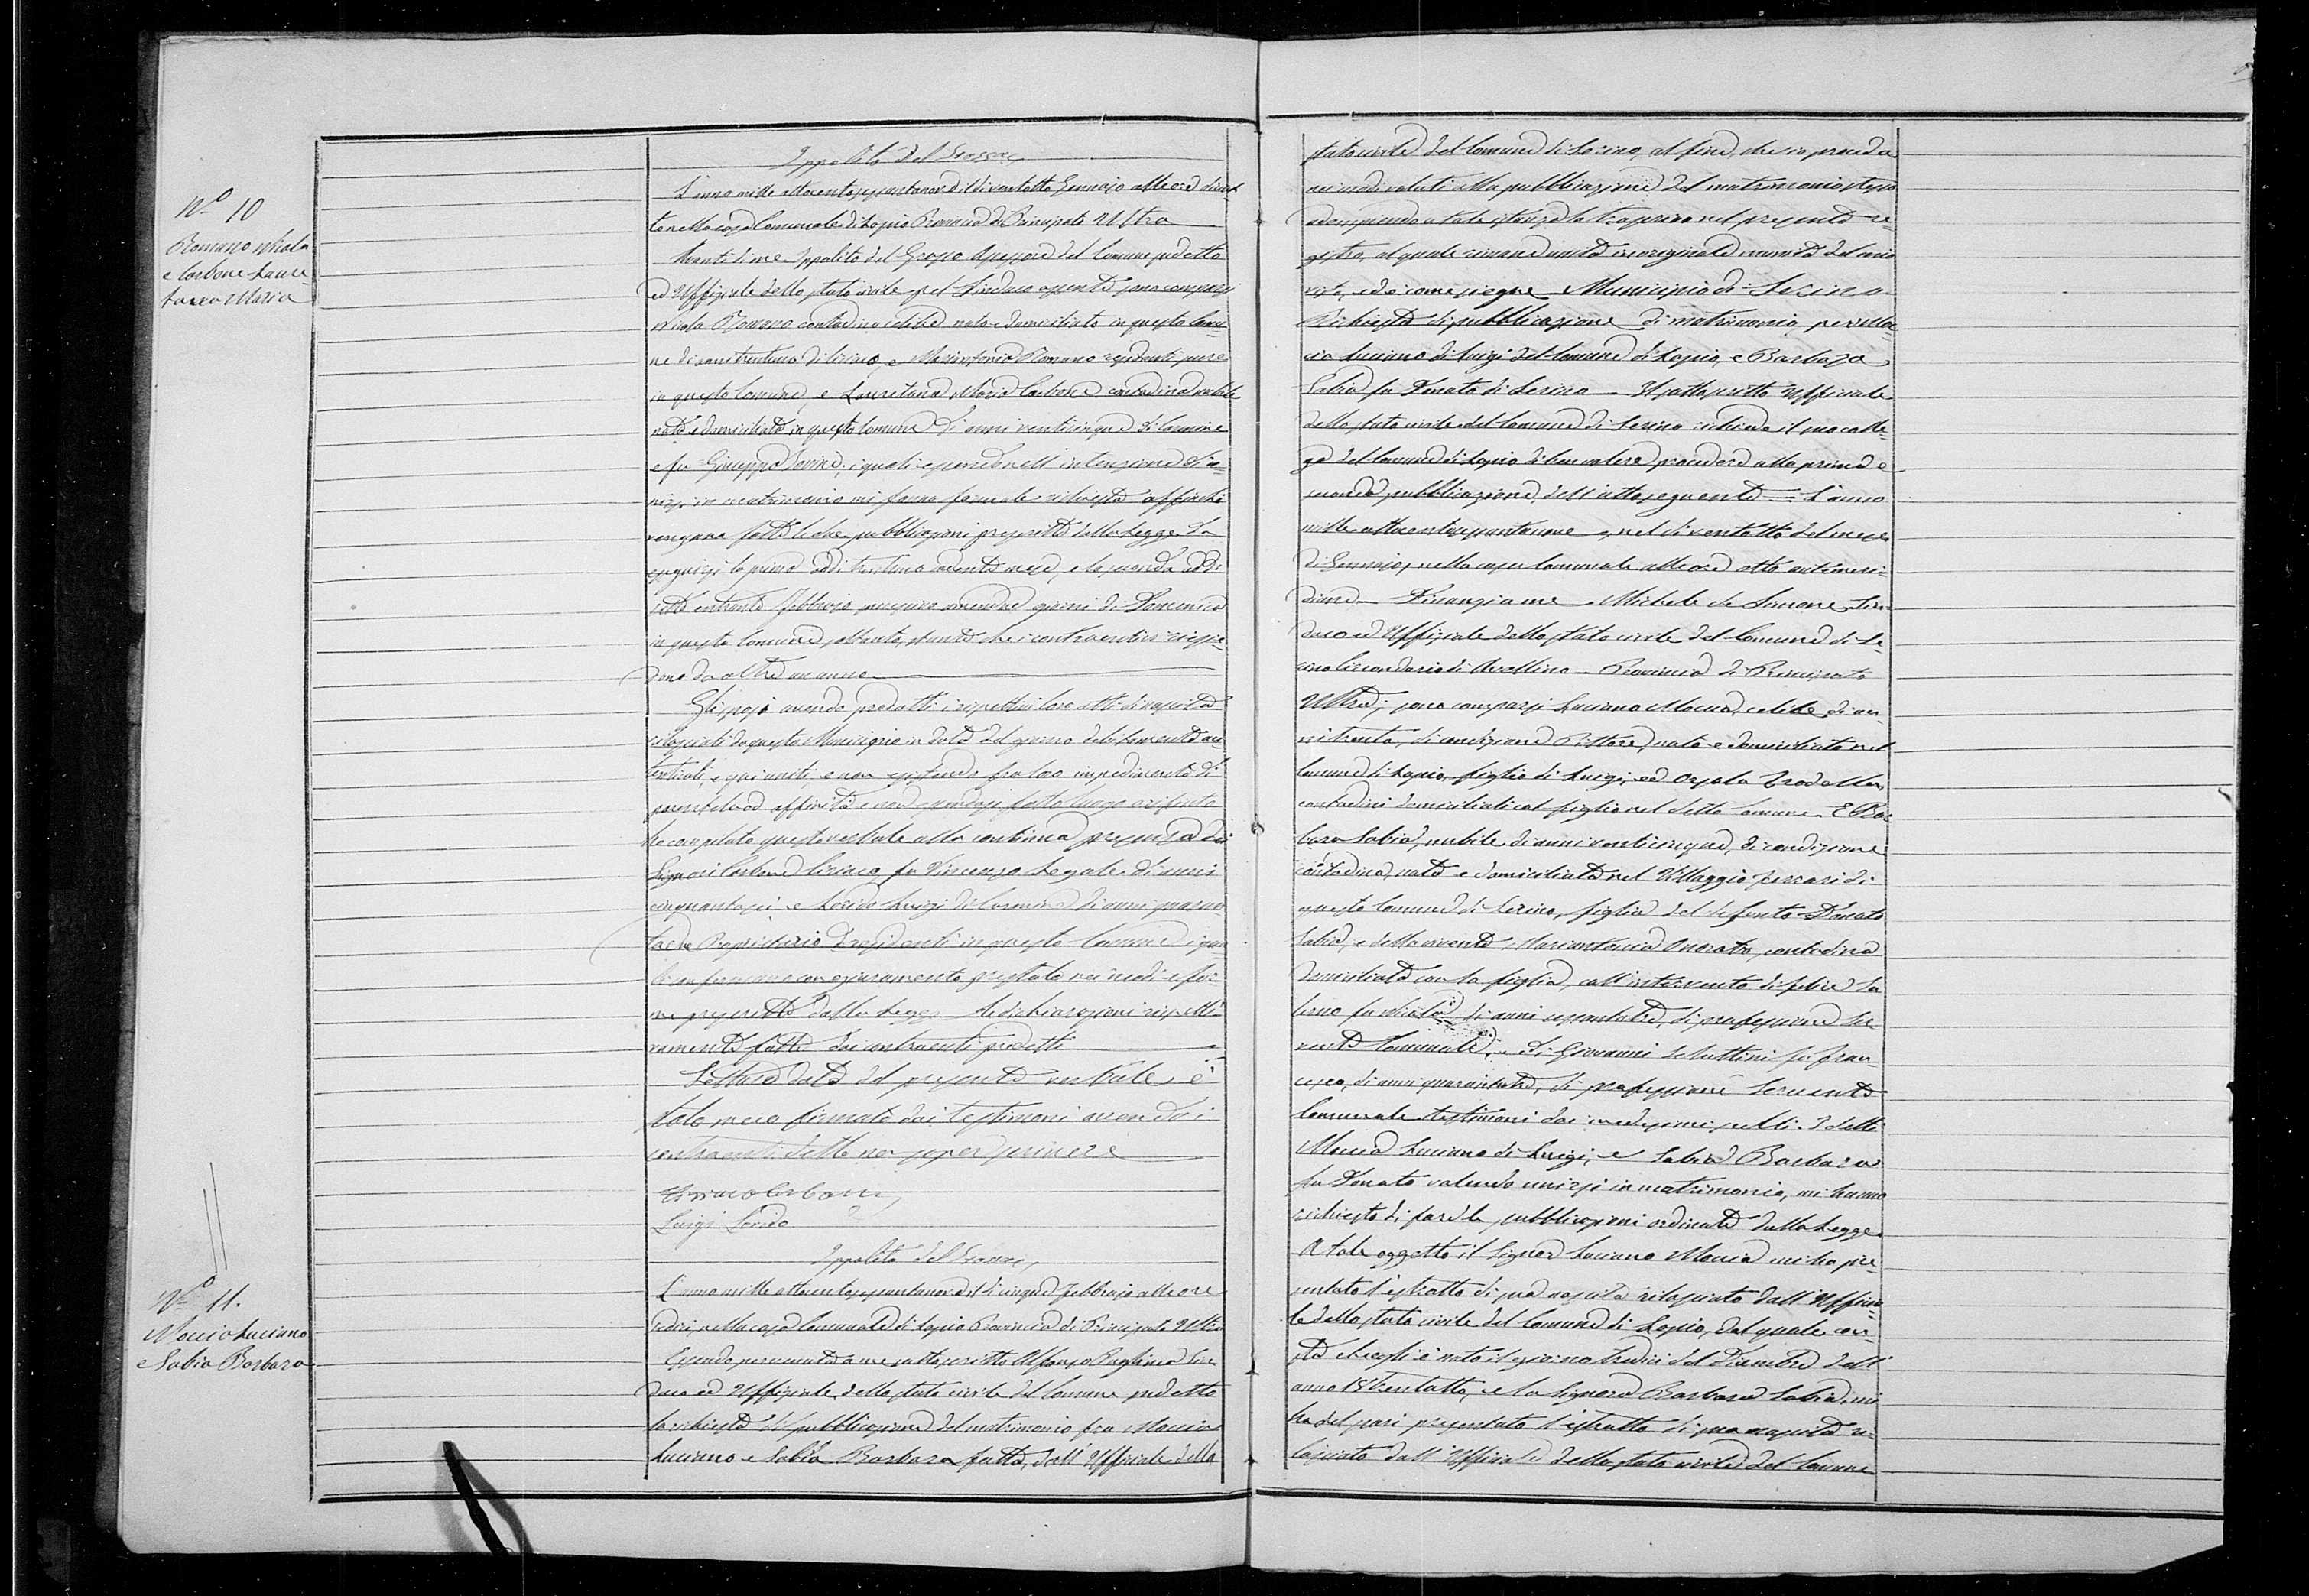 Ippolito del Grosso
Nº 10
Romano Nicola
e Carbone Laure
tana Maria
L'anno mille ottocentosessantanove il dì ventotto Gennajo alle ore
nella casa Comunale di Lapio Provincia di Principato Ultra
Avanti di me Ippolito del Grosso Assessore del Comune sudetto
ed Uffiziale dello stato civile pel Sindaco assente sono comparsi
Nicola Romano contadino celibe nato e domiciliato in questo Comu-
ne di anni trentuno di Ciriaco, e Romano residenti pure
in questo Comune, e Lauretana Maria Carbone contadina nubile
nata e domiciliata in questo Comune di anni venticinque di Carmine
e fu Giuseppa i quali essendo nell'intenzione di u-
nirsi in matrimonio mi fanno formale richiesta affinchè
vengano fatte le due pubblicazioni prescritte dalla Legge da
eseguirsi la prima addì trentuno andante mese, e la seconda addì
sette entrante Febbrajo giorni di Domenica
in questo Comune soltanto, stante che i contraenti vi risie-
dono da oltre un anno
Gli sposi avendo prodotti i rispettivi loro atti di nascita
rilasciati da questo Municipio in data del giorno debitamente au-
tenticati, e qui uniti, e non esistendo fra loro impedimento di
parentela od affinità
ho compilato questo verbale alla continua presenza dei
Signori Carbone Ciriaco fu Vincenzo Legale di anni
cinquantasei e Luigi di Carmine di anni quaran
tadue Proprietario residenti in questo Comune i qua
li confermano con giuramento prestato nei modi e for
me prescritte dalla Legge le dichiarazioni rispetti
vamente fatte dai contraenti predetti
Lettura data del presente verbale, è
stato meco firmato dai testimoni avendo i
contraenti detto non saper scrivere
Ciriaco Carbone
Luigi
Ippolito del Grosso
Nº 11.
Moccia Luciano
e Sabia Barbara
L'anno mille ottocentosessantanove il dì cinque Febbrajo alle ore
sedici, nella casa Comunale di Lapio Provincia di Principato Ultra
Essendo pervenuta a me sottoscritto Alfonso Sin
daco ed Uffiziale dello stato civile del Comune sudetto
la richiesta di pubblicazione del matrimonio fra Moccia
Luciano e Sabia Barbara fatta dall'Uffiziale dello
stato civile del Comune di Serino, al fine, che io proceda
nei modi voluti alla pubblicazione del matrimonio stesso
adempiendo a tale istanza la trascrivo nel presente re-
gistro, al quale rimane unita in originale munita del mio
visto, ed è come siegue Municipio di Serino
Richiesta di pubblicazione di matrimonio per Moc-
cia Luciano di Luigi del Comune di Lapio, e Barbara
Sabia fu Donato di Serino Il sottoscritto Uffiziale
dello stato civile del Comune di Serino richiede il suo colle-
ga del Comune di Lapio di ben volere procedere alla prima e
seconda pubblicazione dell'atto seguente = L'anno
mille ottocentosessantanove, nel dì ventotto del mese
di Gennajo, nella casa Comunale alle ore otto antimeri-
diane Dinanzi a me Michele de Simone Sin-
daco ed Uffiziale dello stato civile del Comune di Se-
rino Circondario di Avellino Provincia di Principato
Ultra, sono comparsi Luciano Moccia, celibe di an-
ni trenta, di condizione Pittore, nato e domiciliato nel
Comune di Lapio, figlio di Luigi, ed Orsola
contadini domiciliati col figlio nel detto Comune E Bar
bara Sabia, nubile di anni venticinque, di condizione
contadina, nata e domiciliata nel Villaggio Ferrari di
questo Comune di Serino, figlia del defunto Donato
Sabia, e della vivente Mariantonia contadina
domiciliata con la figlia, coll'intervento di Felice
fu Nicola di anni sessantatre, di professione Ser
vente Comunale, e di Giovanni fu Fran
cesco, di anni di professione Servente
Comunale testimoni dai medesimi scelti. I detti
Moccia Luciano di Luigi, e Sabia Barbara
fu Donato volendo unirsi in matrimonio, mi hanno
richiesto di fare le pubblicazioni ordinate dalla Legge.
A tale oggetto il Signor Luciano Moccia mi ha pre-
sentato l'estratto di sua nascita rilasciato dall'Uffizia
le dello stato civile del Comune di Lapio, dal quale con-
sta che egli è nato il giorno tredici del Dicembre dell'
anno 18trentotto, e la Signora Barbara Sabia mi
ha del pari presentato l'estratto di sua nascita ri-
lasciato dall'Uffiziale dello stato civile del Comune